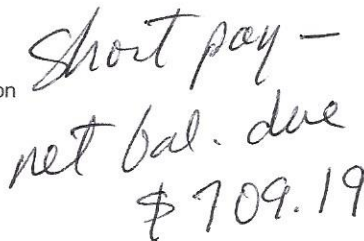 on Short pay –
net bal. due
$709.19